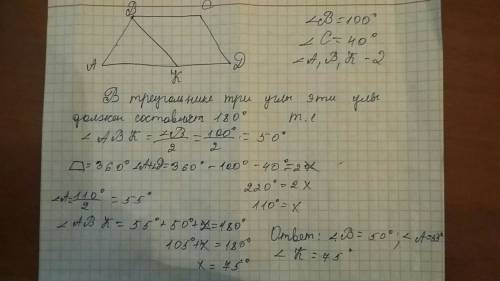 B C
A K D
∠B = 100°
∠C = 40°
∠A, B, K - ?
В треугольнике три углы эти углы
должен составлять 180° т.е
∠ABK = ∠B/2 = 100°/2 = 50°
⏢ = 360° ∠A+∠D = 360° - 100° - 40° = 2x
220° = 2x
110° = x
∠A = 110°/2 = 55°
∠ABK = 55° + 50° + x = 180°
105° + x = 180°
x = 75°
Ответ: ∠B = 50°; ∠A = 55°
∠K = 75°